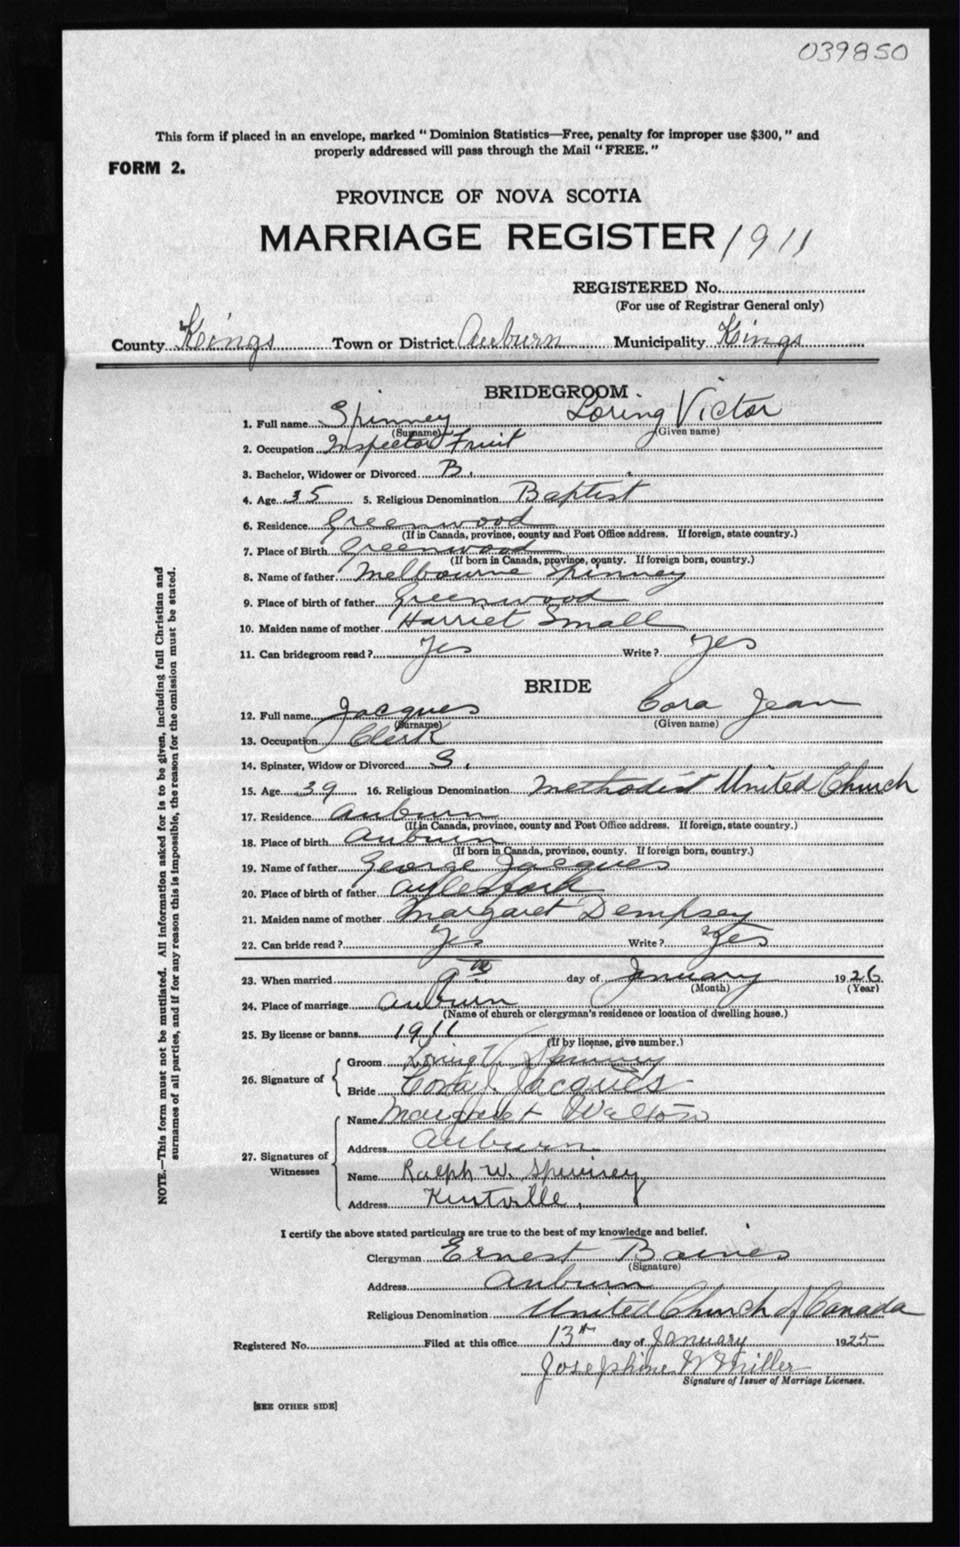 039850
This form if placed in an envelope, marked "Dominion Statistics—Free, penalty for improper use $300," and
properly addressed will pass through the Mail "FREE."
FORM 2.
PROVINCE OF NOVA SCOTIA
MARRIAGE REGISTER 1911
REGISTERED No.
(For use of Registrar General only)
County Kings Town or District Auburn Municipality Kings
BRIDEGROOM
1. Full name Spinney Loring Victor
(Surname) (Given name)
2. Occupation Inspector Fruit
3. Bachelor, Widower or Divorced B.
4. Age 35 5. Religious Denomination Baptist
6. Residence Greenwood
(If in Canada, province, county and Post Office address. If foreign, state country.)
7. Place of Birth Greenwood
(If born in Canada, province, county. If foreign born, country.)
8. Name of father Melbourne Spinney
9. Place of birth of father Greenwood
10. Maiden name of mother Harriet Small
11. Can bridegroom read? Yes Write? Yes
BRIDE
12. Full name Jacques Cora Jean
(Surname) (Given name)
13. Occupation Clerk
14. Spinster, Widow or Divorced S.
15. Age 39 16. Religious Denomination Methodist United Church
17. Residence Auburn
(If in Canada, province, county and Post Office address. If foreign, state country.)
18. Place of birth Auburn
(If born in Canada, province, county. If foreign born, country.)
19. Name of father George Jacques
20. Place of birth of father Aylesford
21. Maiden name of mother Margaret Dempsey
22. Can bride read? Yes Write? Yes
23. When married 9th day of January 1926
(Month) (Year)
24. Place of marriage Auburn
(Name of church or clergyman's residence or location of dwelling house.)
25. By license or banns 1911
(If by license, give number.)
26. Signature of Groom Loring V. Spinney
Bride Cora J. Jacques
27. Signatures of Witnesses Name Margaret Walton
Address Auburn
Name Ralph W. Spinney
Address Kentville
I certify the above stated particulars are true to the best of my knowledge and belief.
Clergyman Ernest Baines
(Signature)
Address Auburn
Religious Denomination United Church of Canada
Registered No. Filed at this office 13th day of January 1925
Josephine W Miller
Signature of Issuer of Marriage Licenses.
[SEE OTHER SIDE]
NOTE.—This form must not be mutilated. All information asked for is to be given, including full Christian and
surnames of all parties, and if for any reason this is impossible, the reason for the omission must be stated.